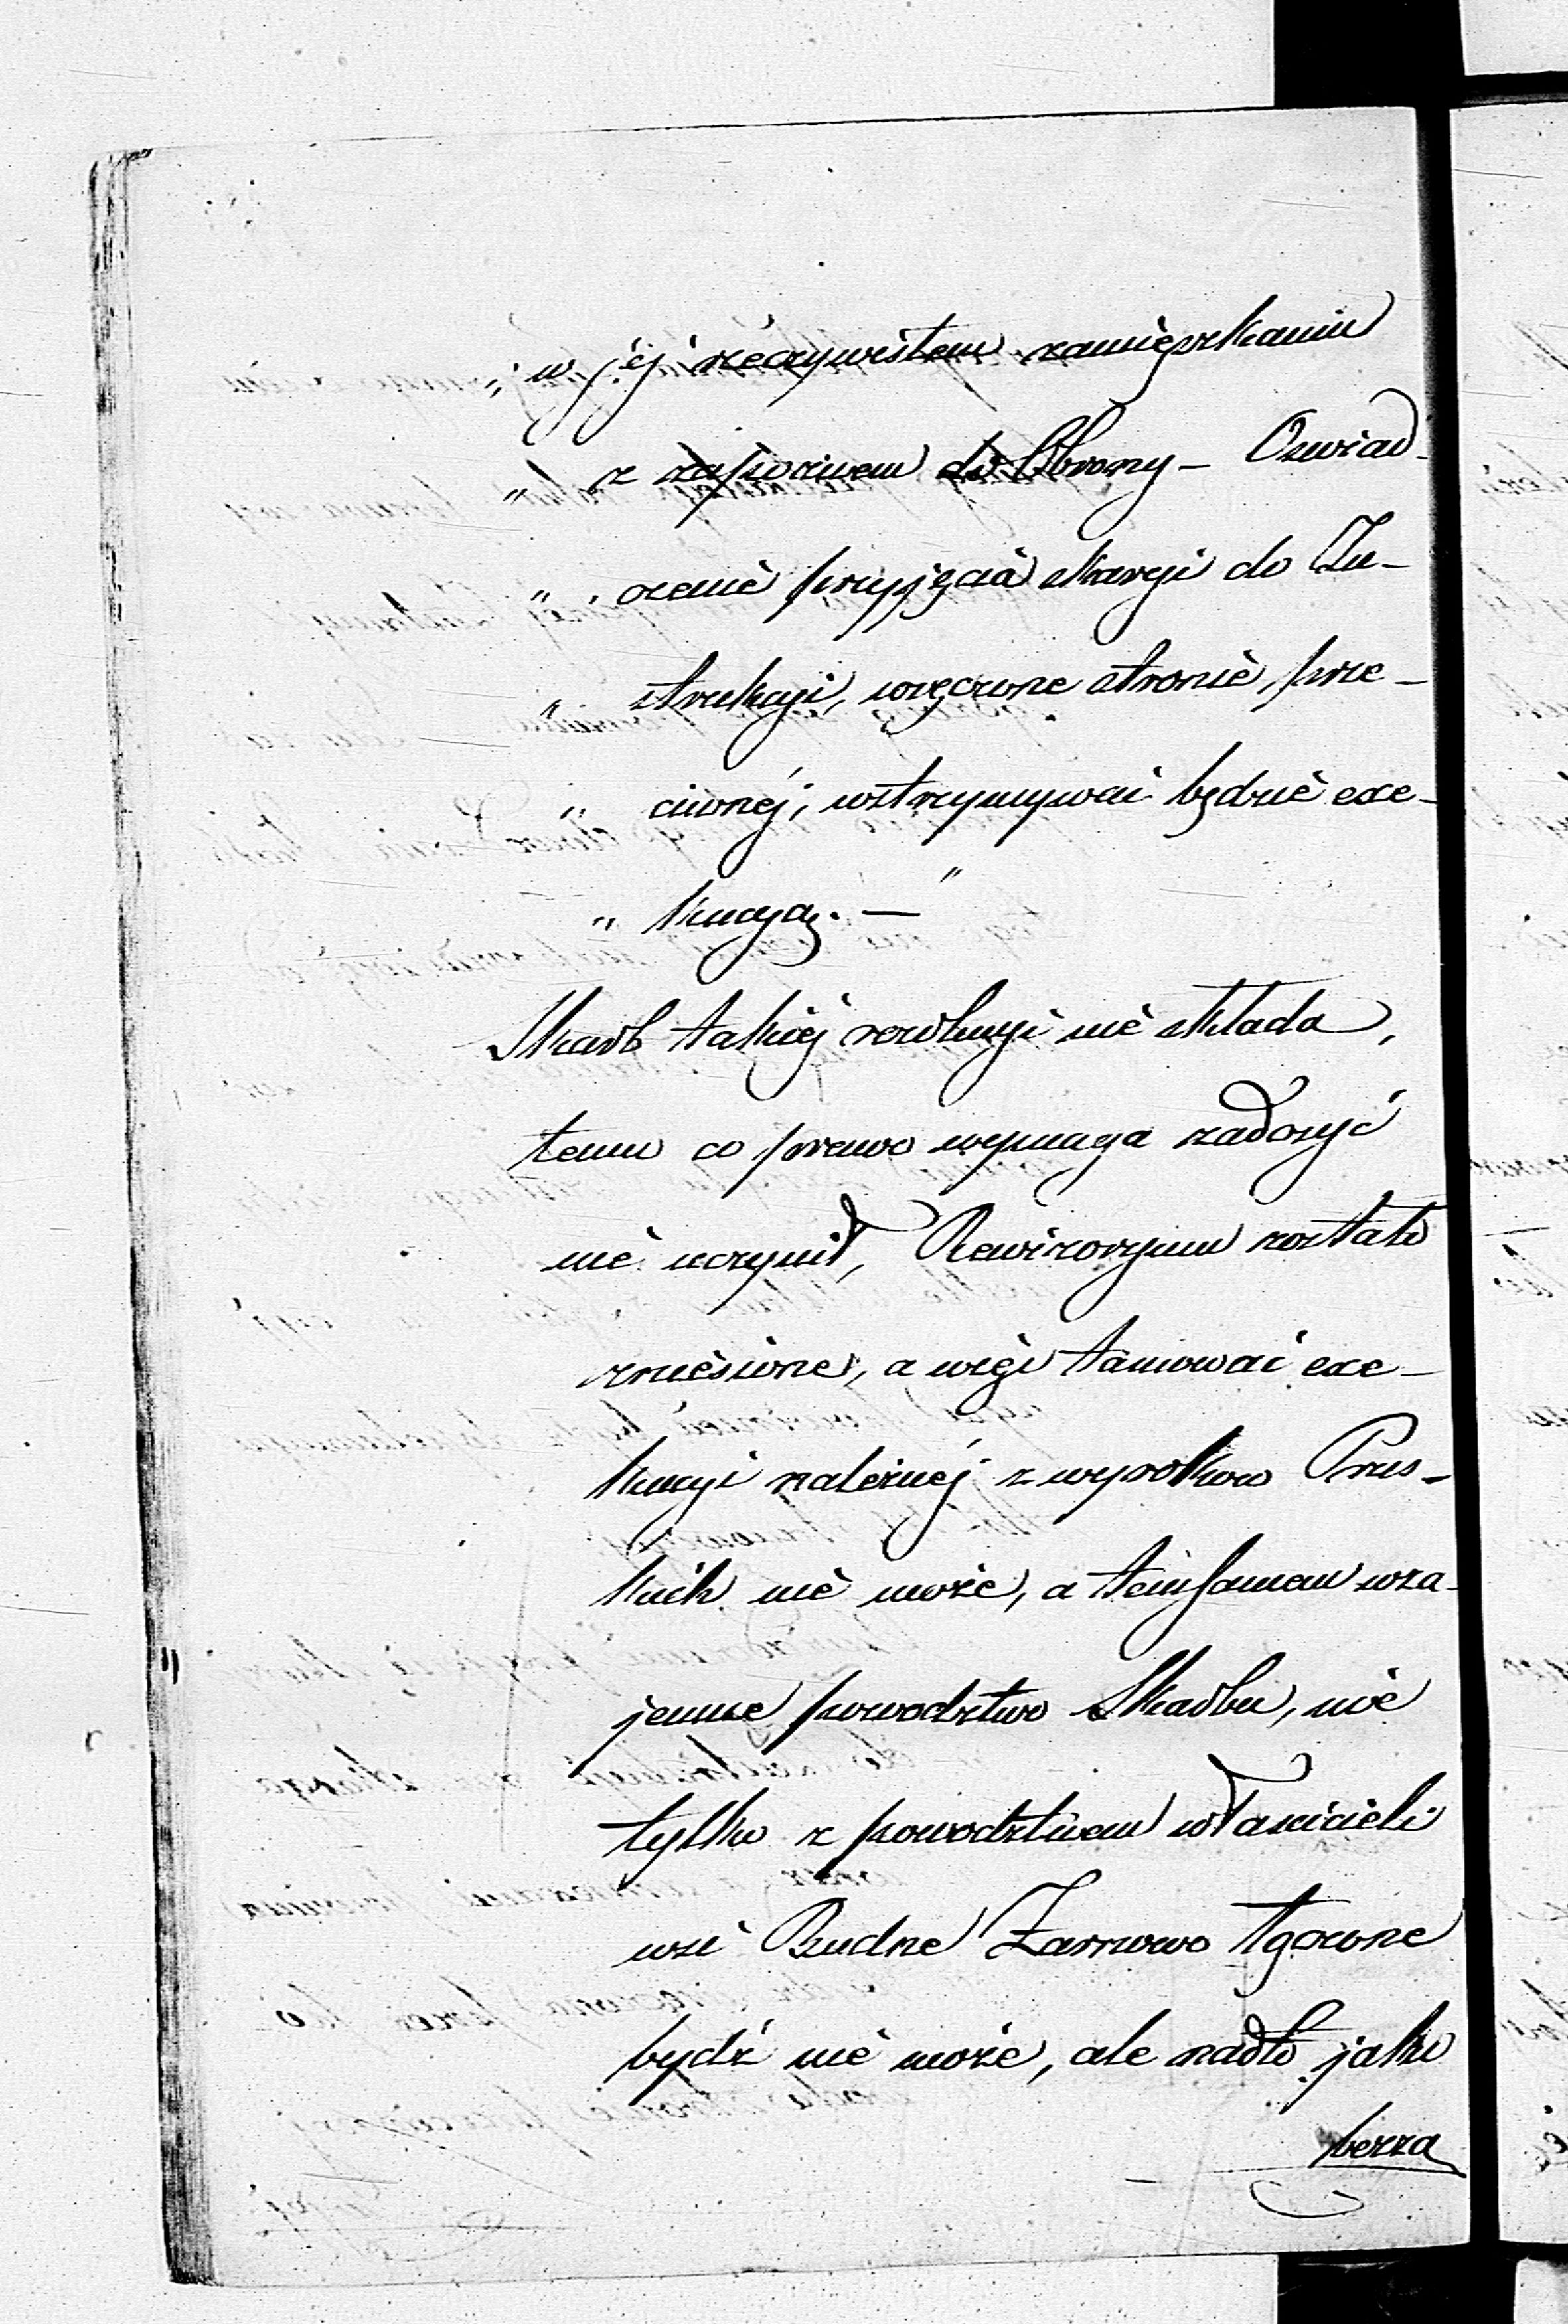 „ w jéj rzeczywistem zamięszkaniu
„ z zapozwem do Obrony – Oswiad-
„ czenie przyjęcia skargi do In-
„ strukcyi, wręczone stronie prze-
„ ciwnéj, wstrzymywać będzie exe-
„ kucyą. – "
Skarb takiéj rezolucyi nie składa,
temu co prawo wymaga zadosyć
nie uczynił, Rewizoryum zostało
zniesione, a więc tamować exe-
kucyi należnéj z wyroków Prus-
kich nie może, a tém samem wza-
jemne powodztwo Skarbu, nie
tylko z powodztwem właścicieli
wsi Budne Żarnowo łączone
bydź nie może, ale nadto jako
bezza